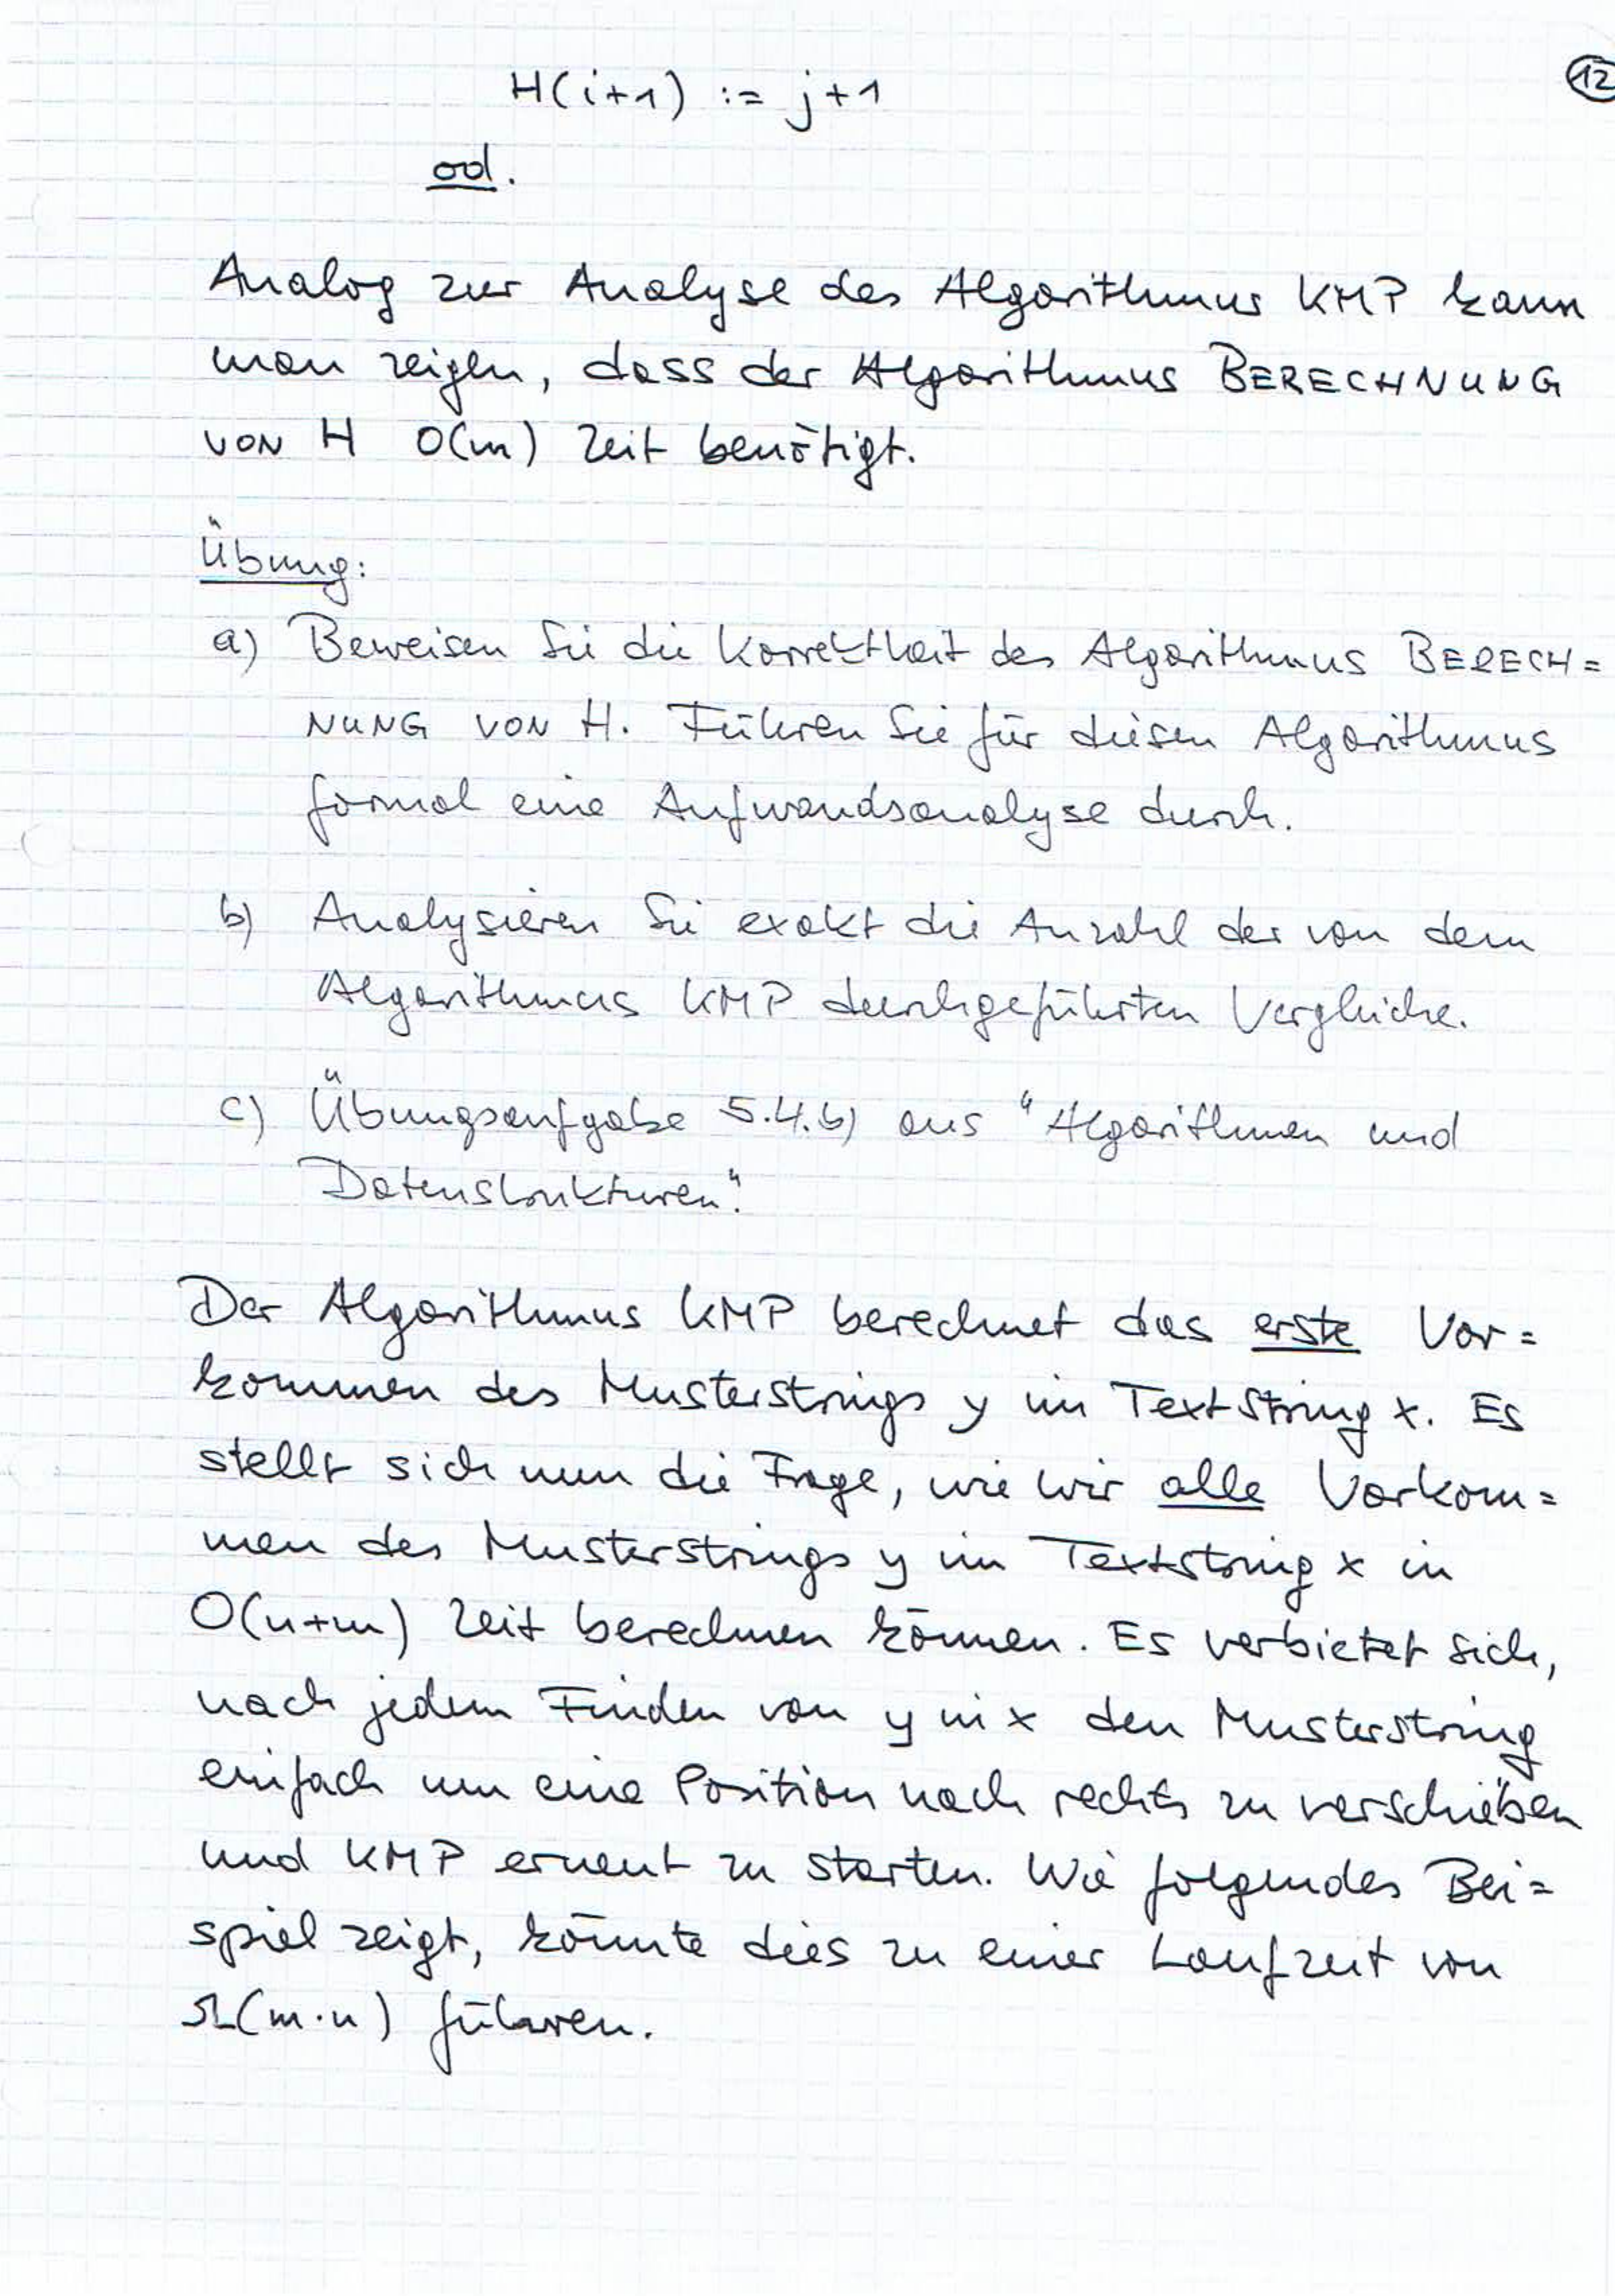 12
H(i+1) := j+1
od.
Analog zur Analyse des Algorithmus KMP kann
man zeigen, dass der Algorithmus BERECHNUNG
VON H O(m) Zeit benötigt.
Übung:
a) Beweisen Sie die Korrektheit des Algorithmus BERECH=
NUNG VON H. Führen Sie für diesen Algorithmus
formal eine Aufwandsanalyse durch.
b) Analysieren Sie exakt die Anzahl der von dem
Algorithmus KMP durchgeführten Vergleiche.
c) Übungsaufgabe 5.4.b) aus "Algorithmen und
Datenstrukturen".
Der Algorithmus KMP berechnet das erste Vor=
kommen des Musterstrings y im Textstring x. Es
stellt sich nun die Frage, wie wir alle Vorkom=
men des Musterstrings y im Textstring x in
O(n+m) Zeit berechnen können. Es verbietet sich,
nach jedem Finden von y in x den Musterstring
einfach um eine Position nach rechts zu verschieben
und KMP erneut zu starten. Wie folgendes Bei=
spiel zeigt, könnte dies zu einer Laufzeit von
Ω(m·n) führen.